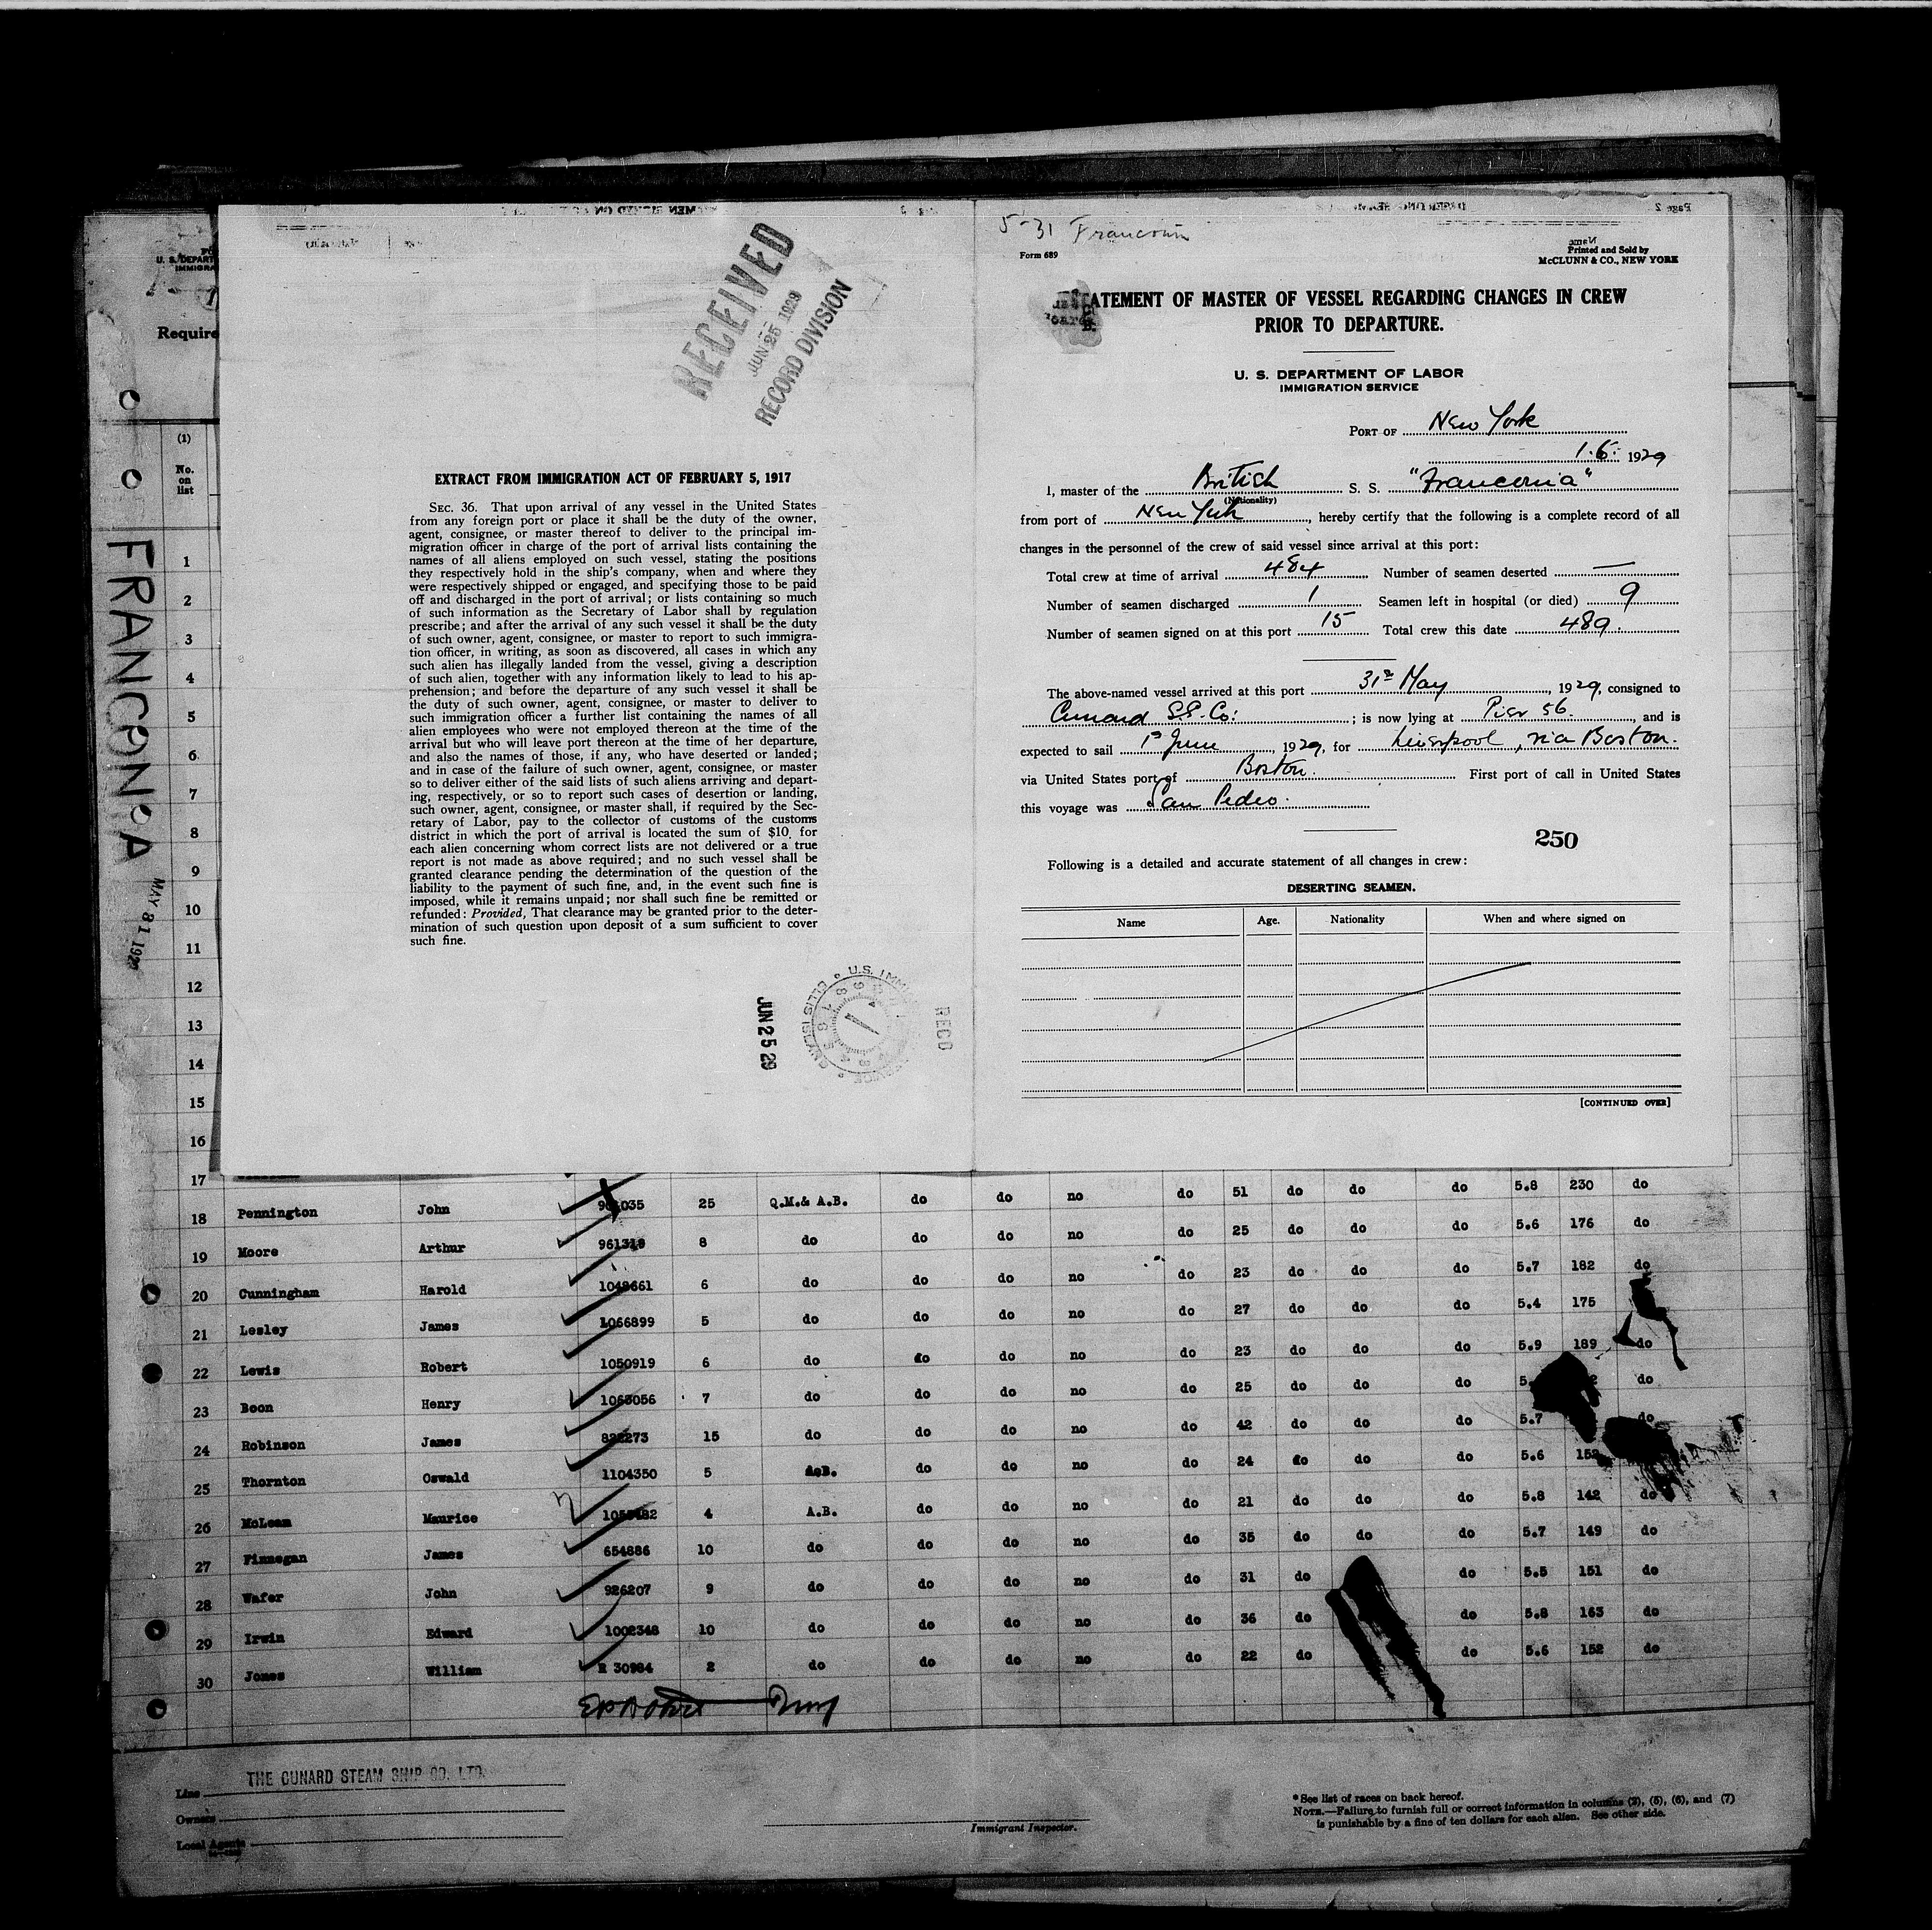 FRANCONIA
MAY 31 1929
U. S. DEPART
IMMIGRA
Require
(1)
No.
on
list
1
2
3
4
5
6
7
8
9
10
11
12
13
14
15
16
17
RECEIVED
JUN 25 1929
RECORD DIVISION
EXTRACT FROM IMMIGRATION ACT OF FEBRUARY 5, 1917
SEC. 36. That upon arrival of any vessel in the United States
from any foreign port or place it shall be the duty of the owner,
agent, consignee, or master thereof to deliver to the principal im-
migration officer in charge of the port of arrival lists containing the
names of all aliens employed on such vessel, stating the positions
they respectively hold in the ship's company, when and where they
were respectively shipped or engaged, and specifying those to be paid
off and discharged in the port of arrival; or lists containing so much
of such information as the Secretary of Labor shall by regulation
prescribe; and after the arrival of any such vessel it shall be the duty
of such owner, agent, consignee, or master to report to such immigra-
tion officer, in writing, as soon as discovered, all cases in which any
such alien has illegally landed from the vessel, giving a description
of such alien, together with any information likely to lead to his ap-
prehension; and before the departure of any such vessel it shall be
the duty of such owner, agent, consignee, or master to deliver to
such immigration officer a further list containing the names of all
alien employees who were not employed thereon at the time of the
arrival but who will leave port thereon at the time of her departure,
and also the names of those, if any, who have deserted or landed;
and in case of the failure of such owner, agent, consignee, or master
so to deliver either of the said lists of such aliens arriving and depart-
ing, respectively, or so to report such cases of desertion or landing,
such owner, agent, consignee, or master shall, if required by the Sec-
retary of Labor, pay to the collector of customs of the customs
district in which the port of arrival is located the sum of $10 for
each alien concerning whom correct lists are not delivered or a true
report is not made as above required; and no such vessel shall be
granted clearance pending the determination of the question of the
liability to the payment of such fine, and, in the event such fine is
imposed, while it remains unpaid; nor shall such fine be remitted or
refunded: Provided, That clearance may be granted prior to the deter-
mination of such question upon deposit of a sum sufficient to cover
such fine.
JUN 25 29
RECD
5-31 Franconia
Form 689
Printed and Sold by
McCLUNN & CO., NEW YORK
STATEMENT OF MASTER OF VESSEL REGARDING CHANGES IN CREW
PRIOR TO DEPARTURE.
U. S. DEPARTMENT OF LABOR
IMMIGRATION SERVICE
PORT OF New York
1.6. 1929
I, master of the British S. S. "Franconia"
(Nationality)
from port of New York, hereby certify that the following is a complete record of all
changes in the personnel of the crew of said vessel since arrival at this port:
Total crew at time of arrival 484 Number of seamen deserted —
Number of seamen discharged 1 Seamen left in hospital (or died) 9
Number of seamen signed on at this port 15 Total crew this date 489.
The above-named vessel arrived at this port 31st May, 1929, consigned to
Cunard S.S. Co.; is now lying at Pier 56., and is
expected to sail 1st June, 1929, for Liverpool, via Boston.
via United States port of Boston. First port of call in United States
this voyage was San Pedro.
250
Following is a detailed and accurate statement of all changes in crew:
DESERTING SEAMEN.
Name Age. Nationality When and where signed on
[CONTINUED OVER]
18 Pennington John 25 Q.M.& A.B. do do no do 51 do do do 5.8 230 do
19 Moore Arthur 961319 8 do do do no do 25 do do do 5.6 176 do
20 Cunningham Harold 1049661 6 do do do no do 23 do do do 5.7 182 do
21 Lesley James 1066899 5 do do do no do 27 do do do 5.4 175
22 Lewis Robert 1050919 6 do do do no do 23 do do do 5.9 189 do
23 Boon Henry 1063056 7 do do do no do 25 do do do do
24 Robinson James 15 do do do no do 42 do do do 5.7 do
25 Thornton Oswald 1104350 5 A.B. do do no do 24 do do do 5.6 do
26 McLean Maurice 4 A.B. do do no do 21 do do do 5.8 142 do
27 Finnegan James 654886 10 do do do no do 35 do do do 5.7 149 do
28 Wafer John 926207 9 do do do no do 31 do do 5.5 151 do
29 Irwin Edward 1002348 10 do do do no do 36 do do 5.8 163 do
30 Jones William R 30984 2 do do do no do 22 do do 5.6 152 do
Line THE CUNARD STEAM SHIP CO. LTD.
Owners
Local Agents
Immigrant Inspector.
* See list of races on back hereof.
NOTE.—Failure to furnish full or correct information in columns (2), (5), (6), and (7)
is punishable by a fine of ten dollars for each alien. See other side.